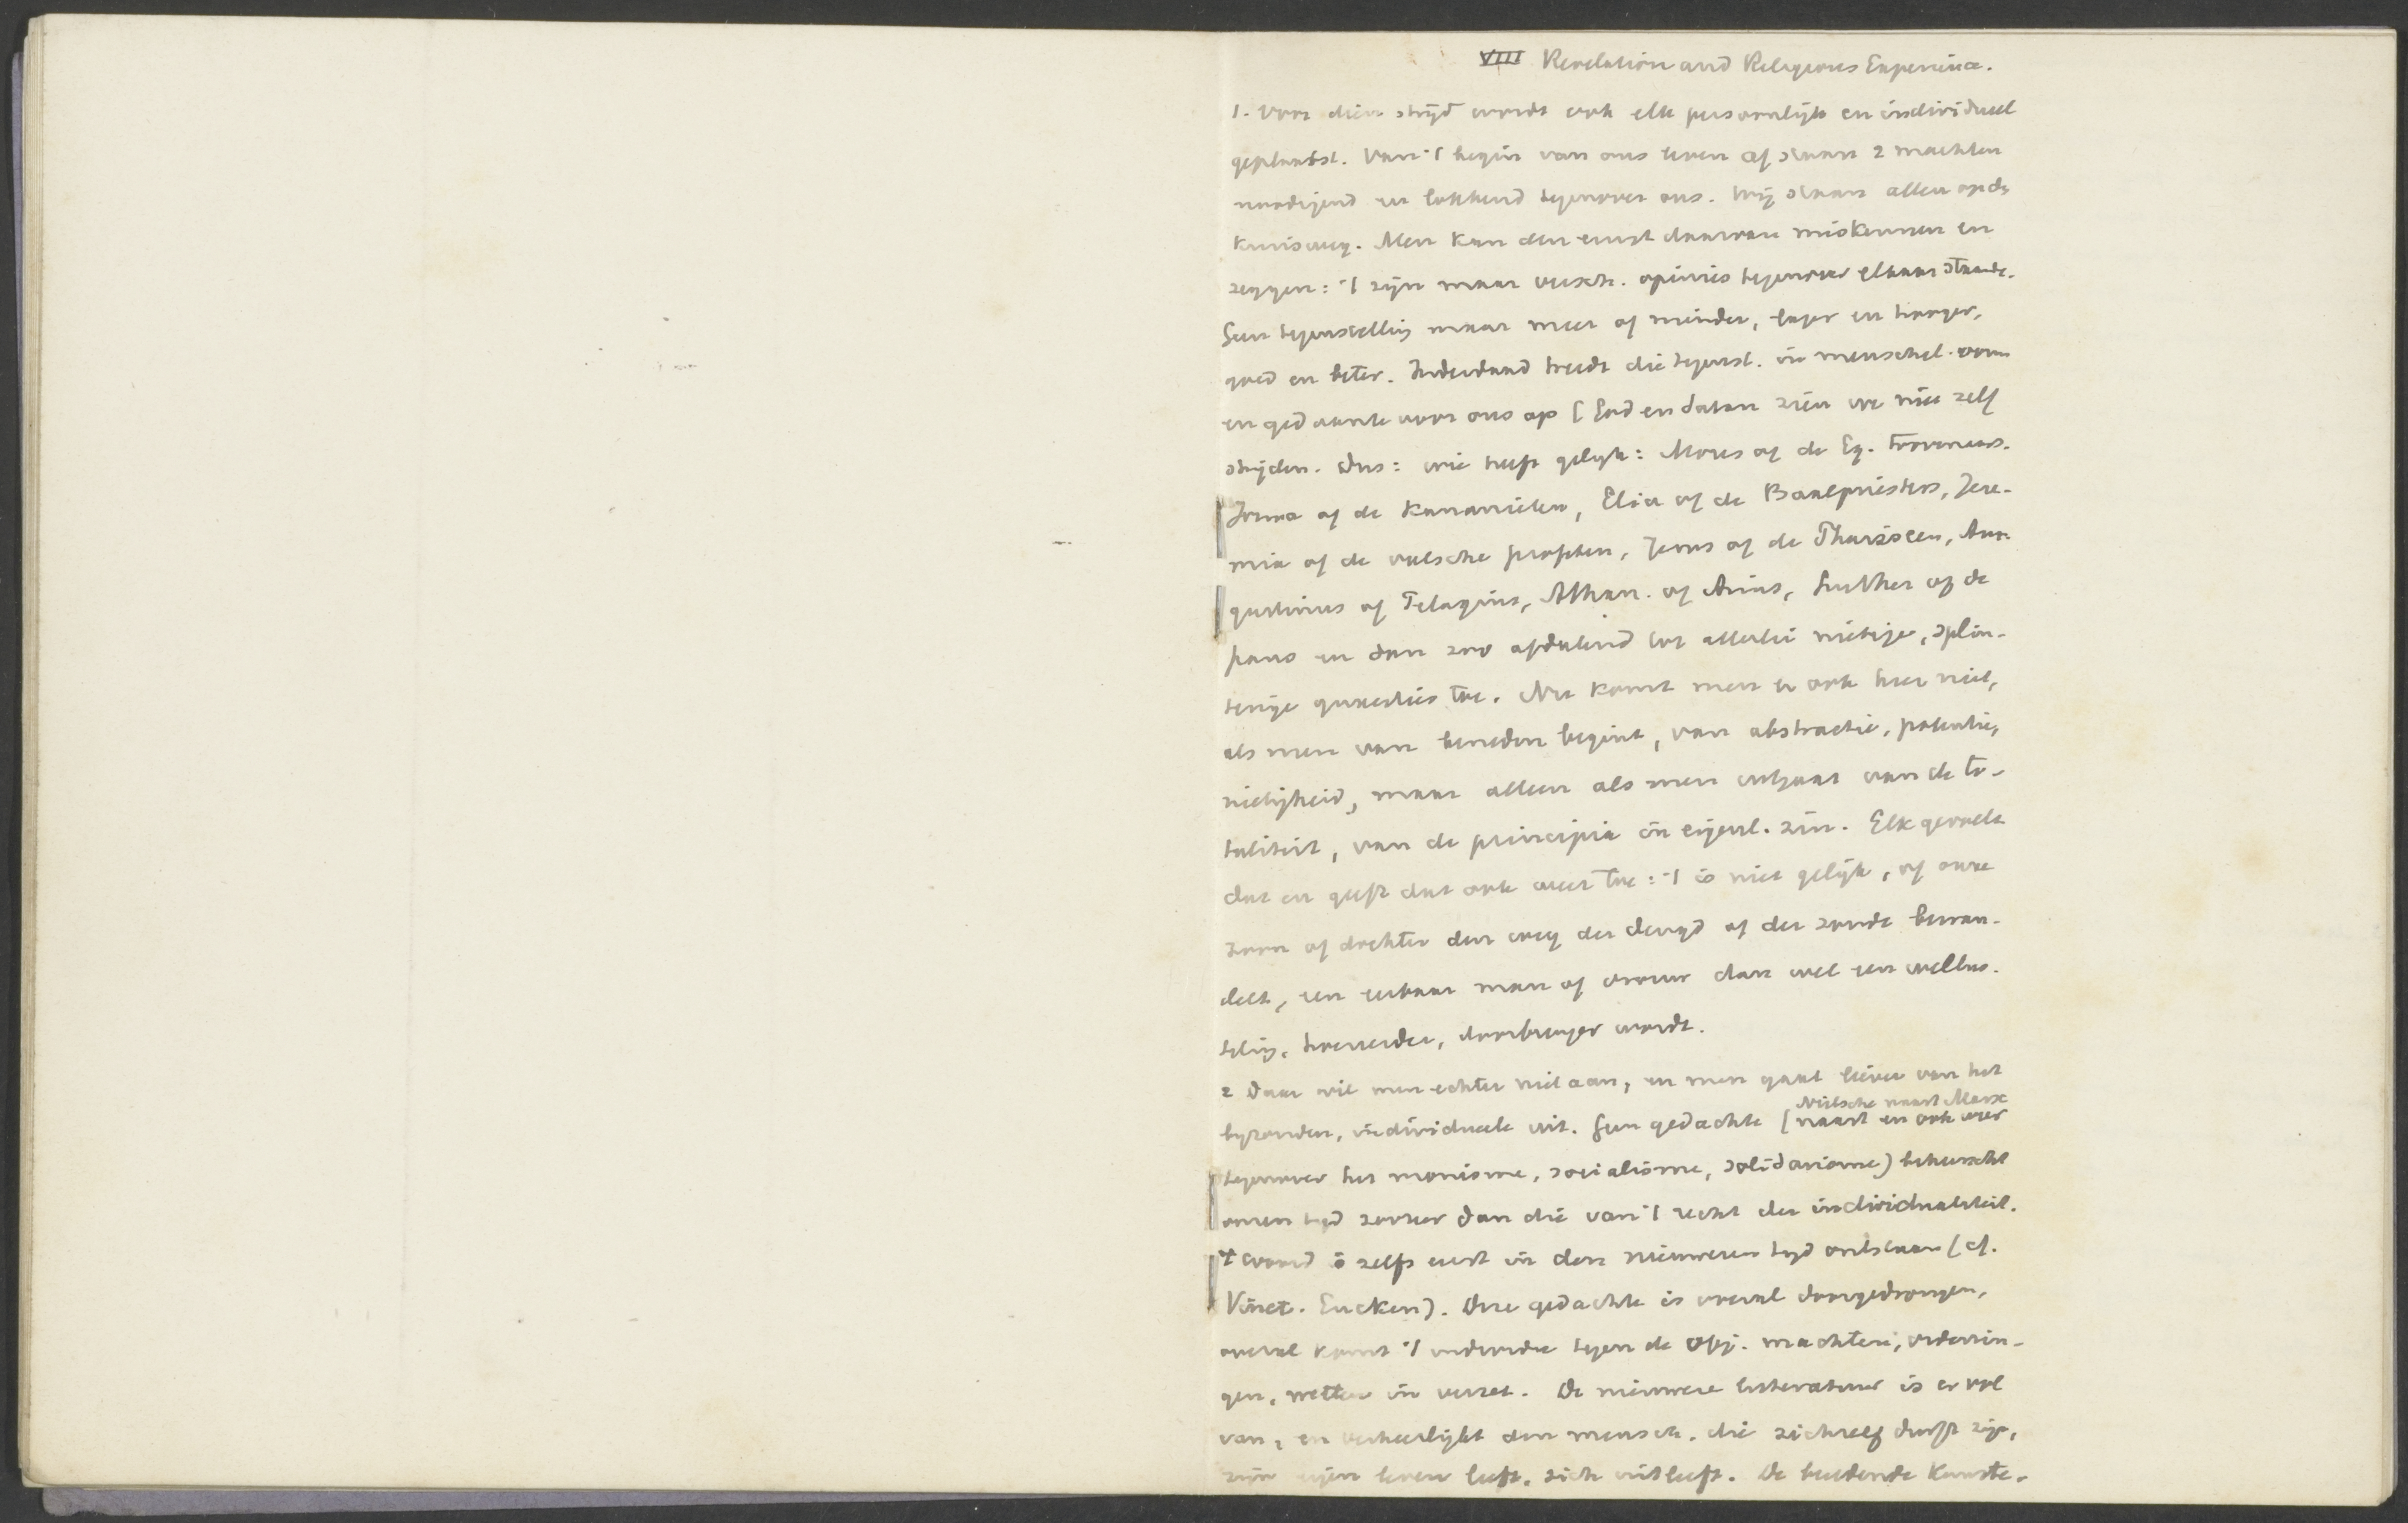 VIII Revelation and Religious Experience.
1. Voor dien strijd wordt ook elk persoonlijk en individueel
geplaatst. Van 't begin van ons leven af staan 2 machten
noodigend en lokkend tegenover ons. Wij staan allen op de
kruisweg. Men kan den ernst daarvan miskennen en
zeggen: 't zijn maar versch. opinies tegenover elkaar staande.
Geen tegenstelling maar meer of minder, lager en hooger,
goed en beter. Inderdaad treedt die tegenst. in menschel. vorm
en gedaante voor ons op [God en Satan zien we niet zelf
strijden. Dus: wie heeft gelijk: Mozes of de Eg. toovenaars.
Jozua of de Kanaanieten, Elia of de Baalpriesters, Jere-
mia of de valsche profeten, Jezus of de Pharizeen, Au-
gustinus of Pelagius, Athan. of Arius, Luther of de
paus en dan zoo afdalend tot allerlei nietige, splin-
terige quaesties toe. Nu komt men er ook hier niet,
als men van beneden begint, van abstractie, potentie,
nietigheid, maar alleen als men uitgaat van de to-
taliteit, van de principia in eigenl. zin. Elk gevoelt
dat en geeft dat ook weer toe: 't is niet gelijk, of onze
zoon of dochter den weg der deugd of der zonde bewan-
delt, een eerbaar man of vrouw dan wel een wellus-
teling, doorbrenger wordt.
2 Daar wil men echter niet aan, en men gaat liever van het
byzondere, individueele uit. Geen gedachte [naast en ook weer
Nietsche naast Marx
tegenover het monisme, socialisme, solidarisme) beheerscht
onzen tijd sterker dan die van 't recht der individualiteit.
't woord is zelfs eerst in den nieuweren tyd ontstaan (cf.
Vinet. Eucken). Deze gedachte is overal doorgedrongen,
overal komt 't individu tegen de obj. machten, ordenin-
gen, wetten in verzet. De nieuwere litteratuur is er vol
van, en verheerlijkt den mensch, die zichzelf durft zijn,
zijn eigen leven leeft, zich uitleeft. De beeldende kunste-